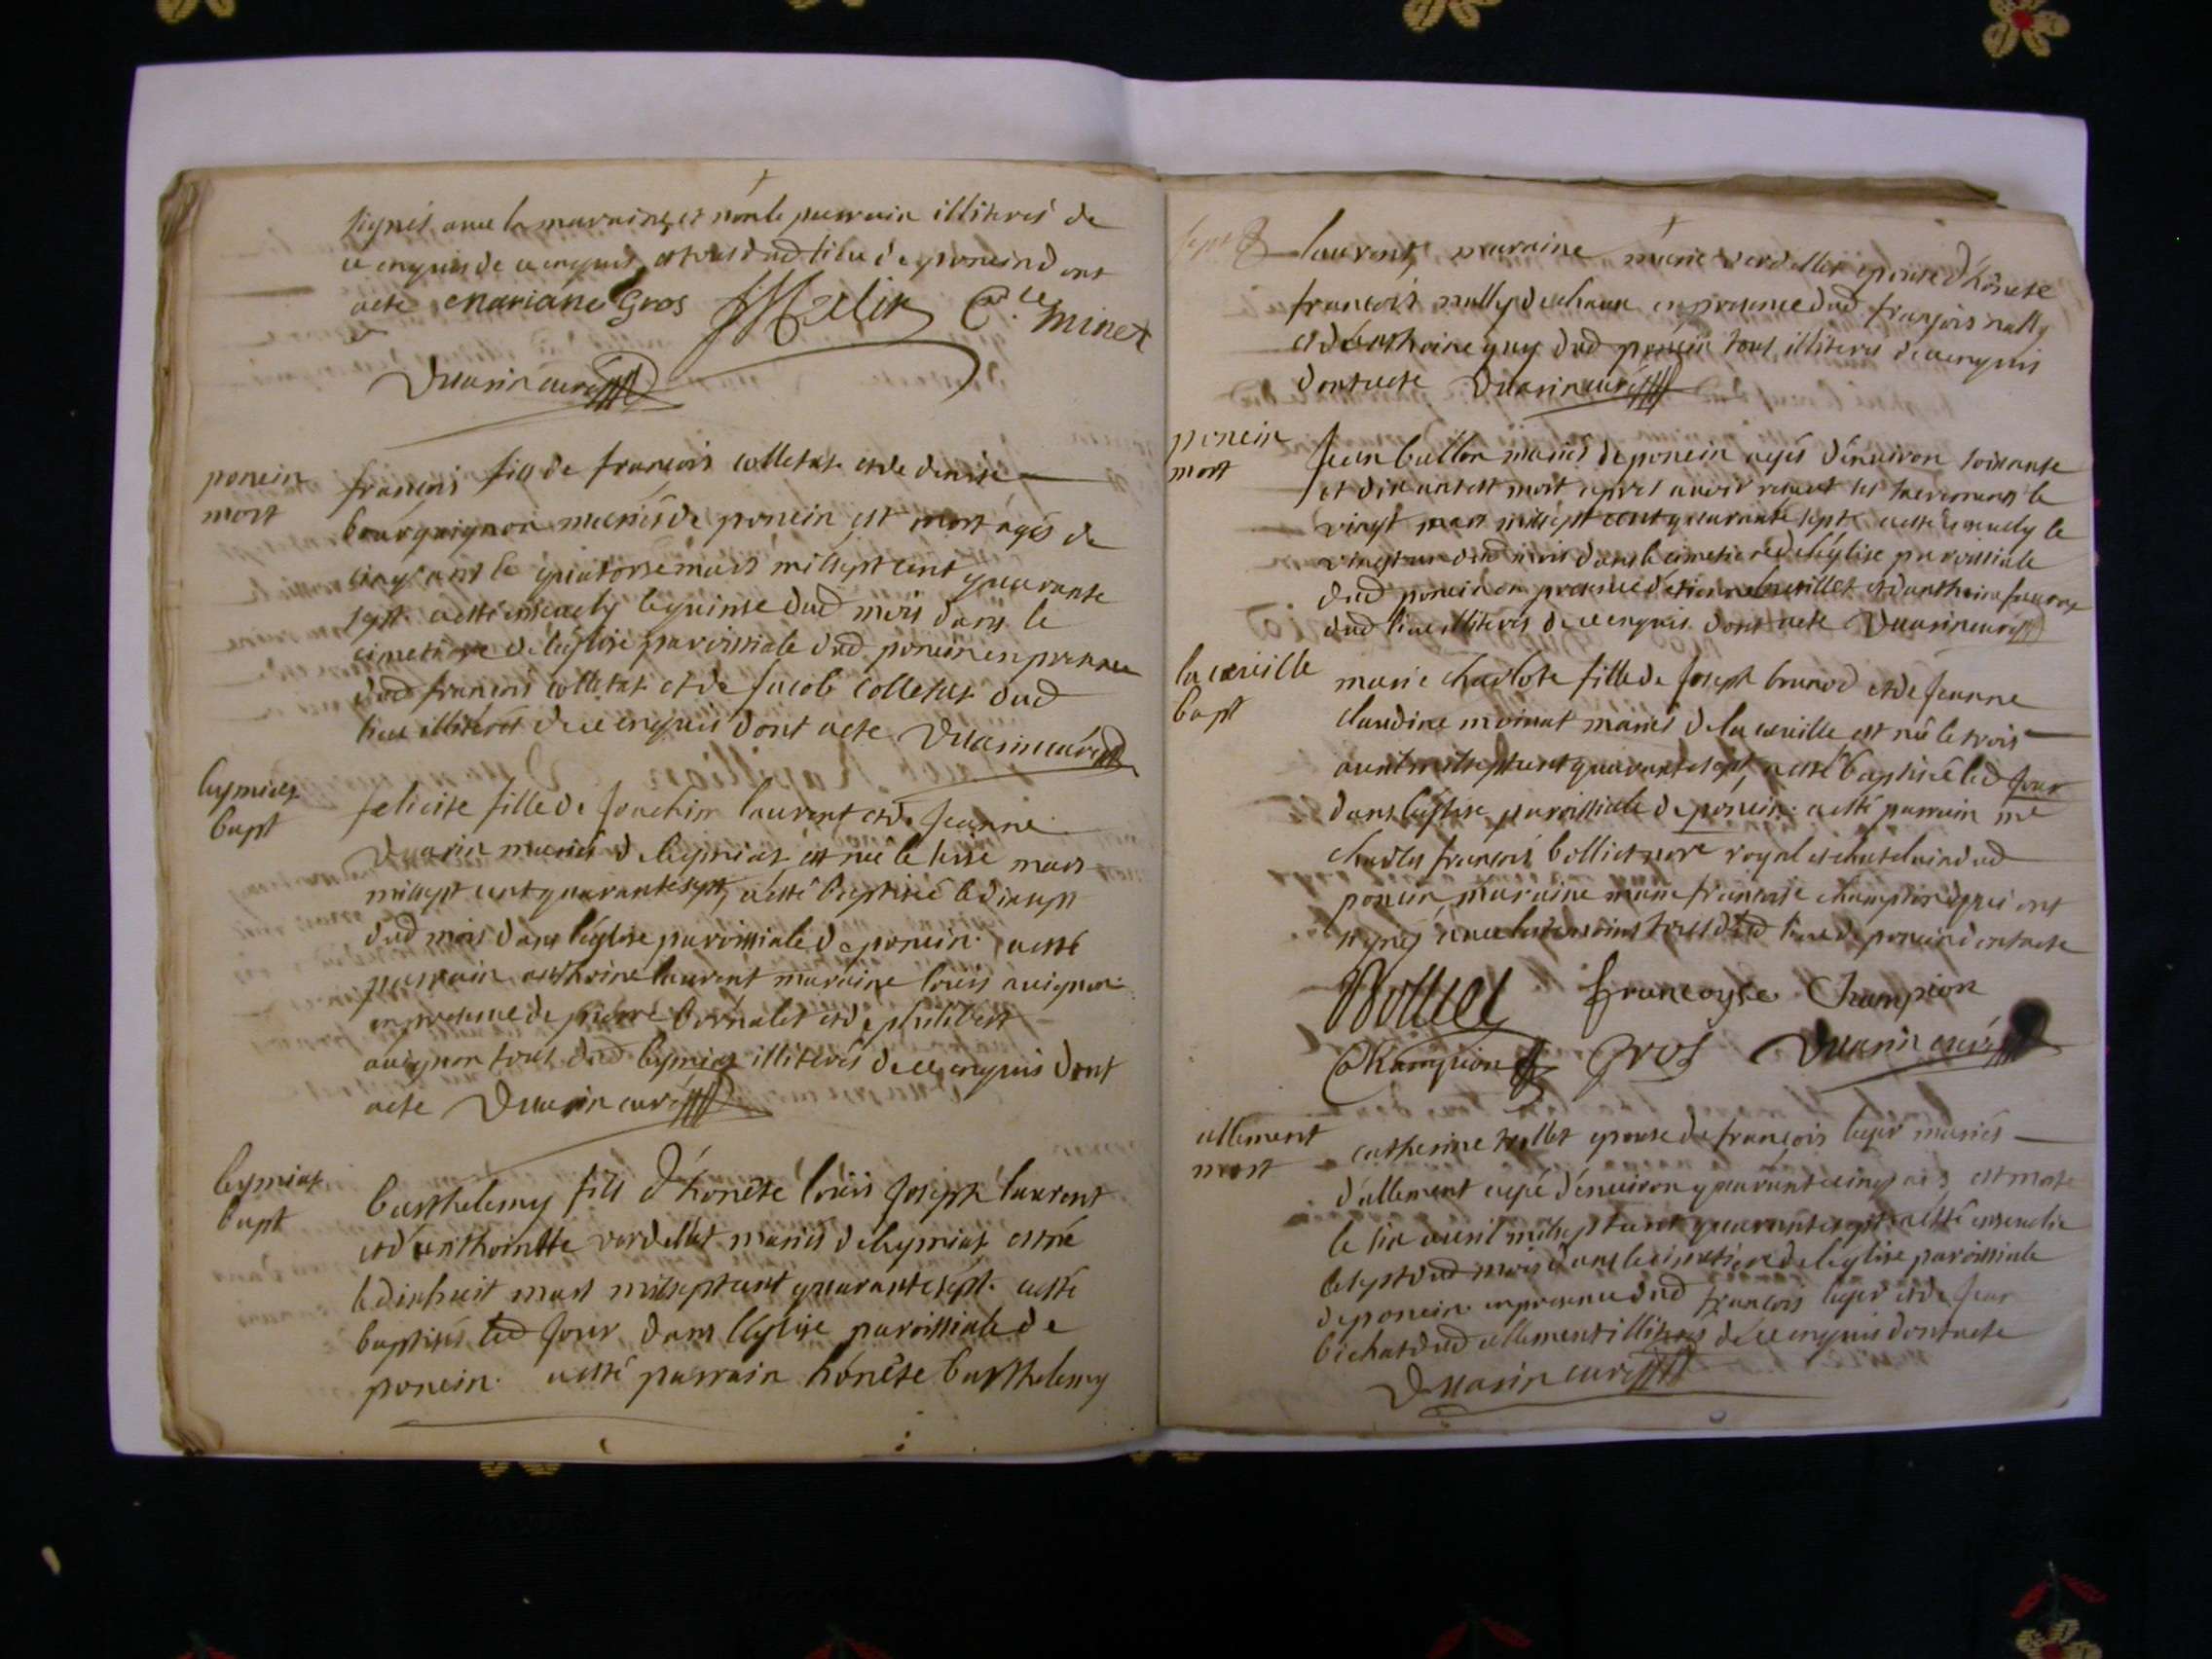 signés avec la maraine, et non le parrain illiteré de
ce enquis de ce enquis, et tous dud lieu de poncin dont
acte mariane Gros C. le minet
Duarin curé
poncin
mort
francois fils de francois colletat et de denise
bourguignon mariés de poncin, est mort agés de
cinq ans le quatorse mars mil sept cent quarante
sept a esté enseuely le quinse dud mois dans le
cimetiere de l'église paroissiale dud poncin en presence
dud francois colletat et de jacob colletat dud
lieu illiterés de ce enquis dont acte Duarin curé
leymiat
bapt
felicite fille de joachim laurent et de jeanne
Duarin mariés de leymiat, est née le sesse mars
mil sept cent quarante sept, a esté baptisée le dixsept
dud mois dans l'église paroissiale de poncin. a esté
parrain anthoine laurent maraine louise avignon
en presence de pierre bornalet et de philibert
avignon tous dud leymiat illiterés de ce enquis dont
acte Duarin curé
leymiat
bapt
barthelemy fils d'honête louis joseph laurent
et d'anthoinette verdellet mariés de leymiat est né
le dixhuit mars mil sept cent quarante sept. a esté
baptisés led jour dans l'église paroissiale de
poncin. a esté parrain honête barthelemy
laurent, maraine marie verdellet epouse d'honete
francois nally en presence dud francois nally
et d'anthoine guy dud poncin tous illiterés de ce enquis
dont acte Duarin curé
poncin
mort
jean ballon mariés de poncin agés d'environ soixante
et dix ans est mort apres avoir receut les sacrements le
vingt mars mil sept cent quarante sept a esté enseuely le
vingt un dud mois dans le cimetiere de l'église paroissiale
dud poncin en presence d'etienne et d'anthoine
dud lieu illiterés de ce enquis dont acte Duarin curé
la cueille
bapt
marie charlote fille de joseph brunod et de jeanne
claudine moinat mariés de la cueille est née le trois
avril mil sept cent quarante sept, a esté baptisée led jour
dans l'église paroissiale de poncin. a esté parrain me
charles francois bolliet nore royal et chatelain dud
poncin, maraine francoise champion qui ont
signés avec les temoins tous dud lieu de poncin dont acte
Bolliet francoyse Champion
Champion Gros Duarin curé
allement
mort
catherine tollet epouse de francois liger mariés
d'allement agée d'environ quarante cinq ans, est morte
le six avril mil sept cent quarante sept a esté enseuelie
le sept dud mois dans le cimetiere de l'eglise paroissiale
de poncin en presence dud francois liger et de jean
bichat dud allement illiterés de ce enquis dont acte
Duarin curé